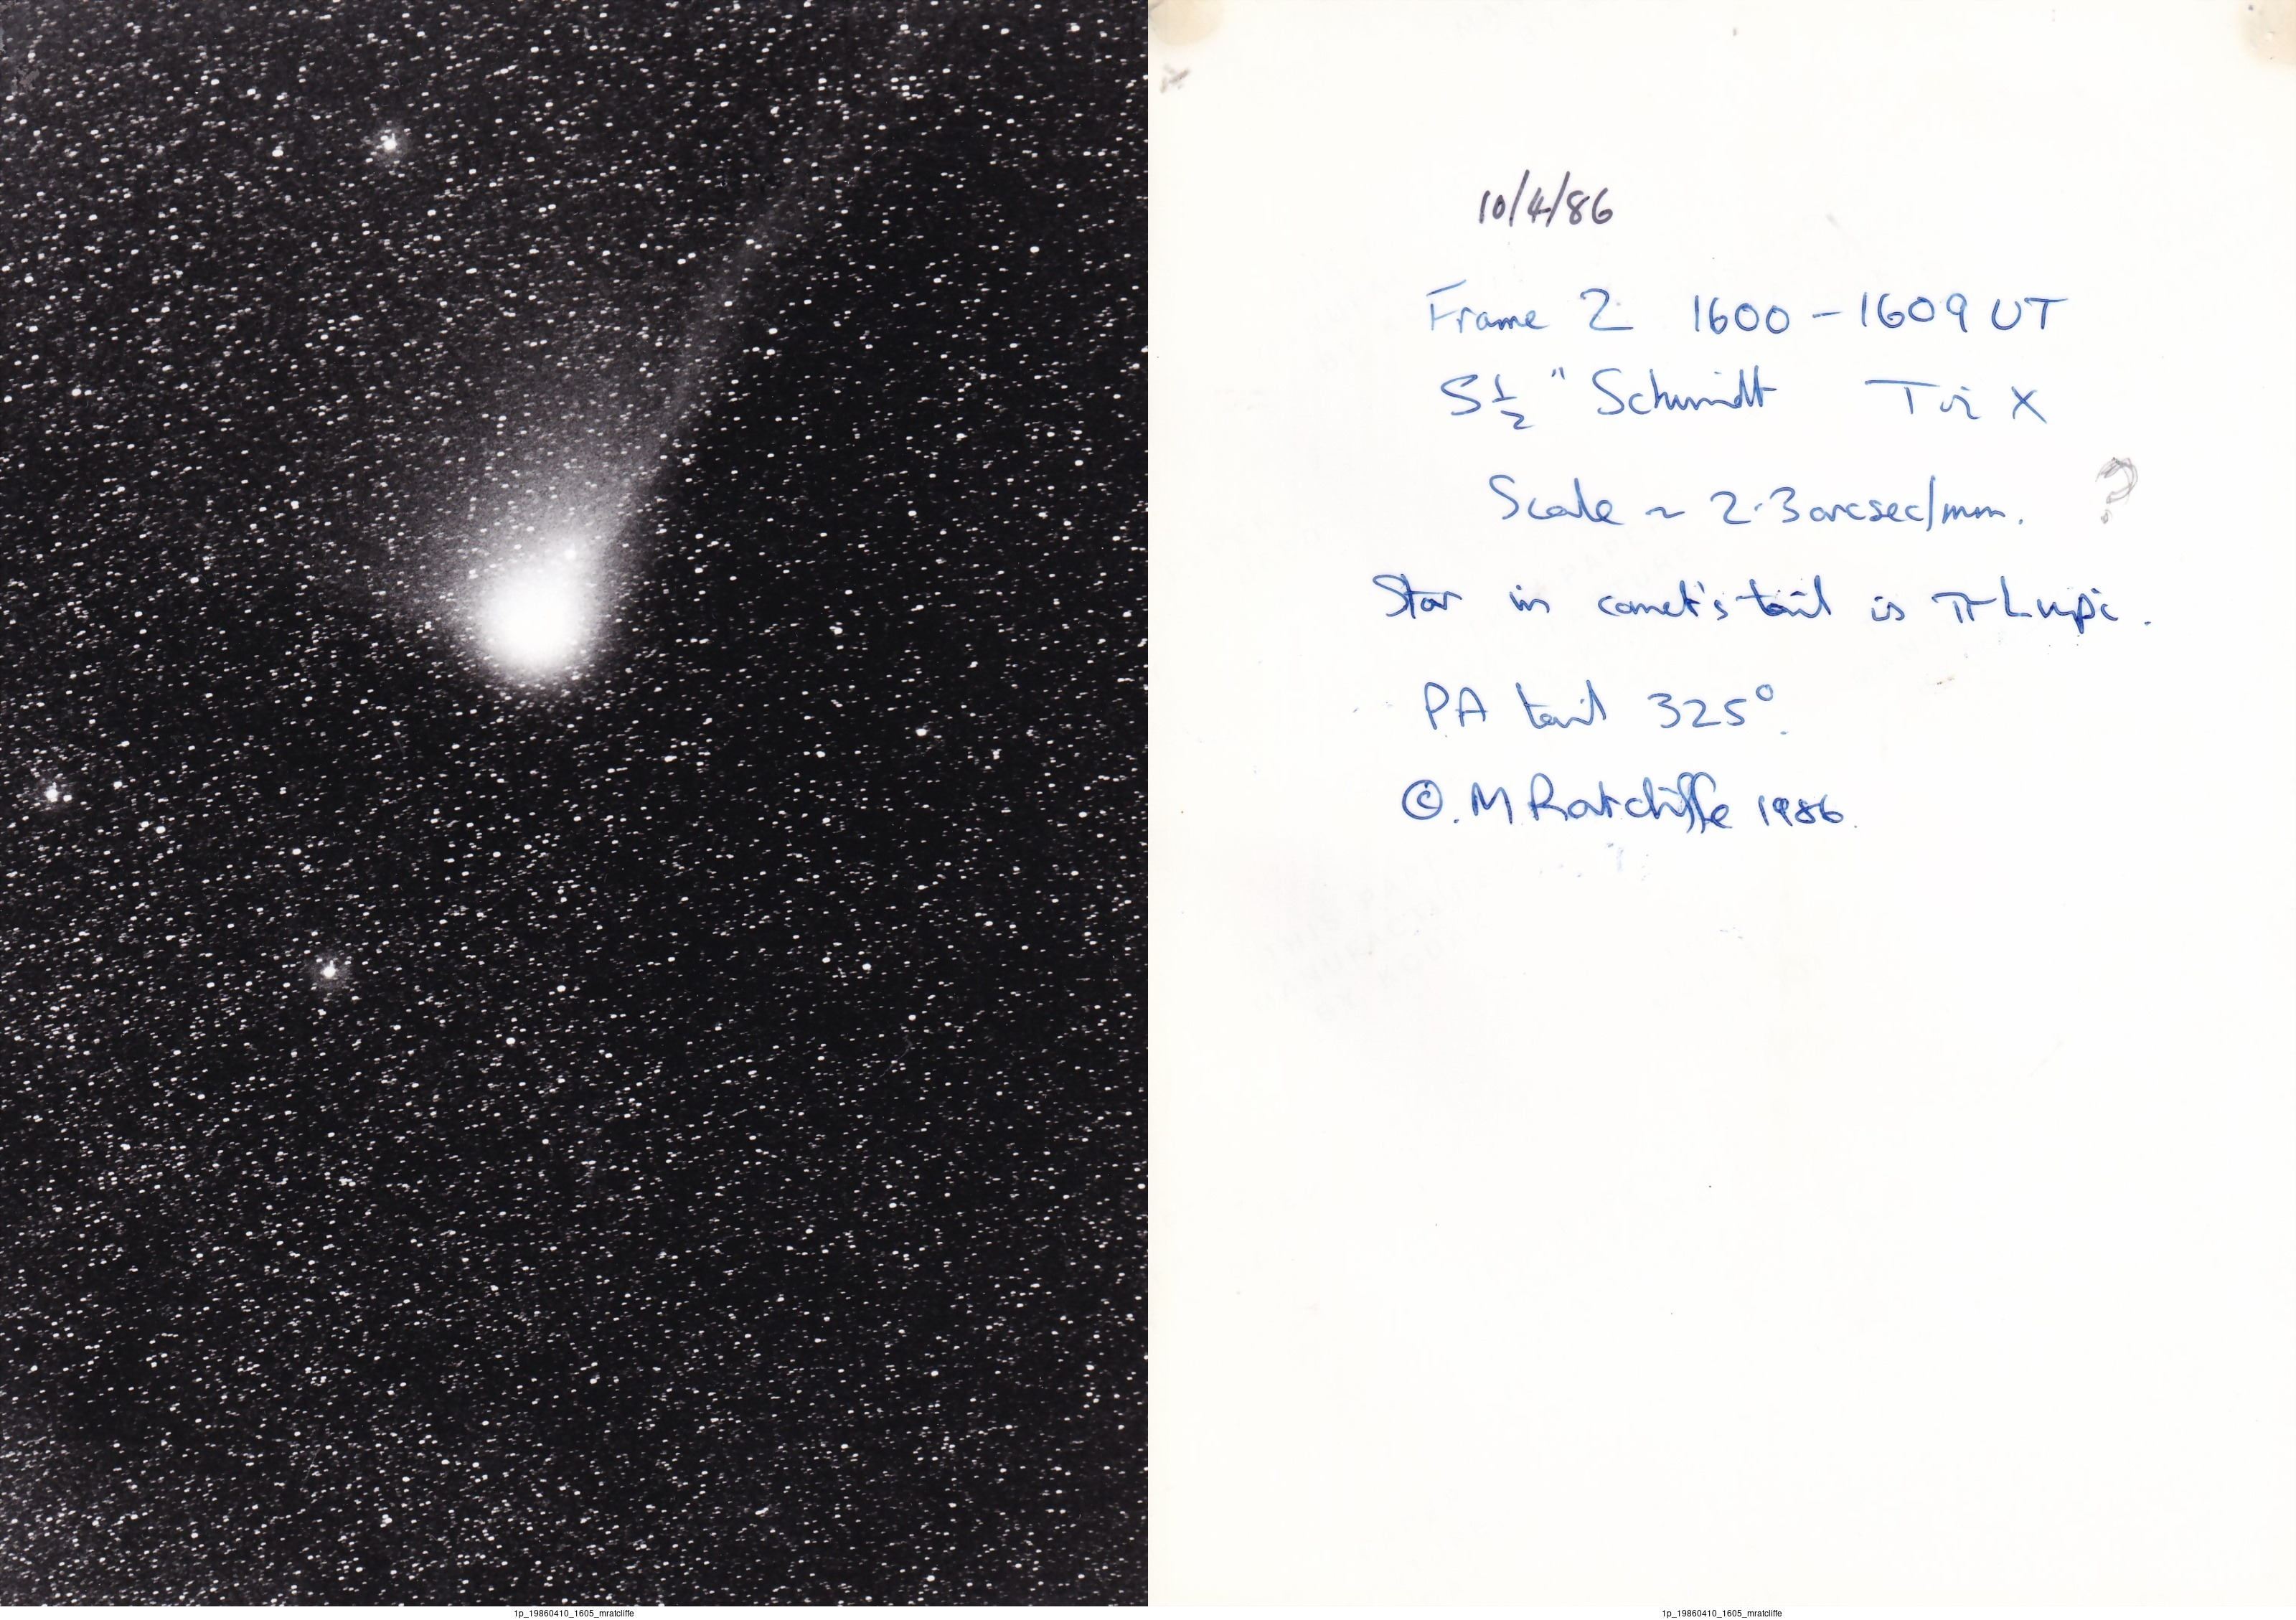 10/4/86
Frame 2 1600 - 1609 UT
5½" Schmidt Tri X
Scale ~ 2.3 arcsec/mm. ?
Star in comet's tail is π Lupi.
PA tail 325°.
©. M Ratcliffe 1986.
1p_19860410_1605_mratcliffe
1p_19860410_1605_mratcliffe